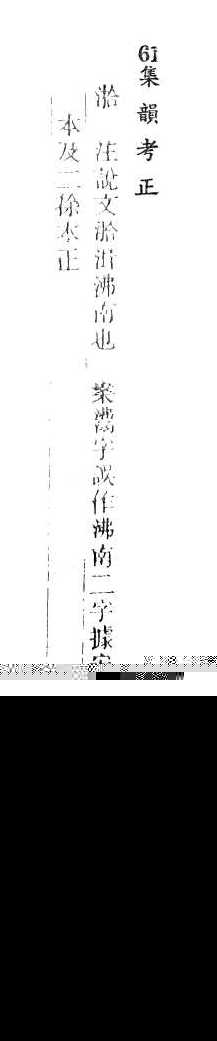 61集韻考正
湁 注說文湁湒沸南也 案字誤作沸南二字據
本及二徐本正